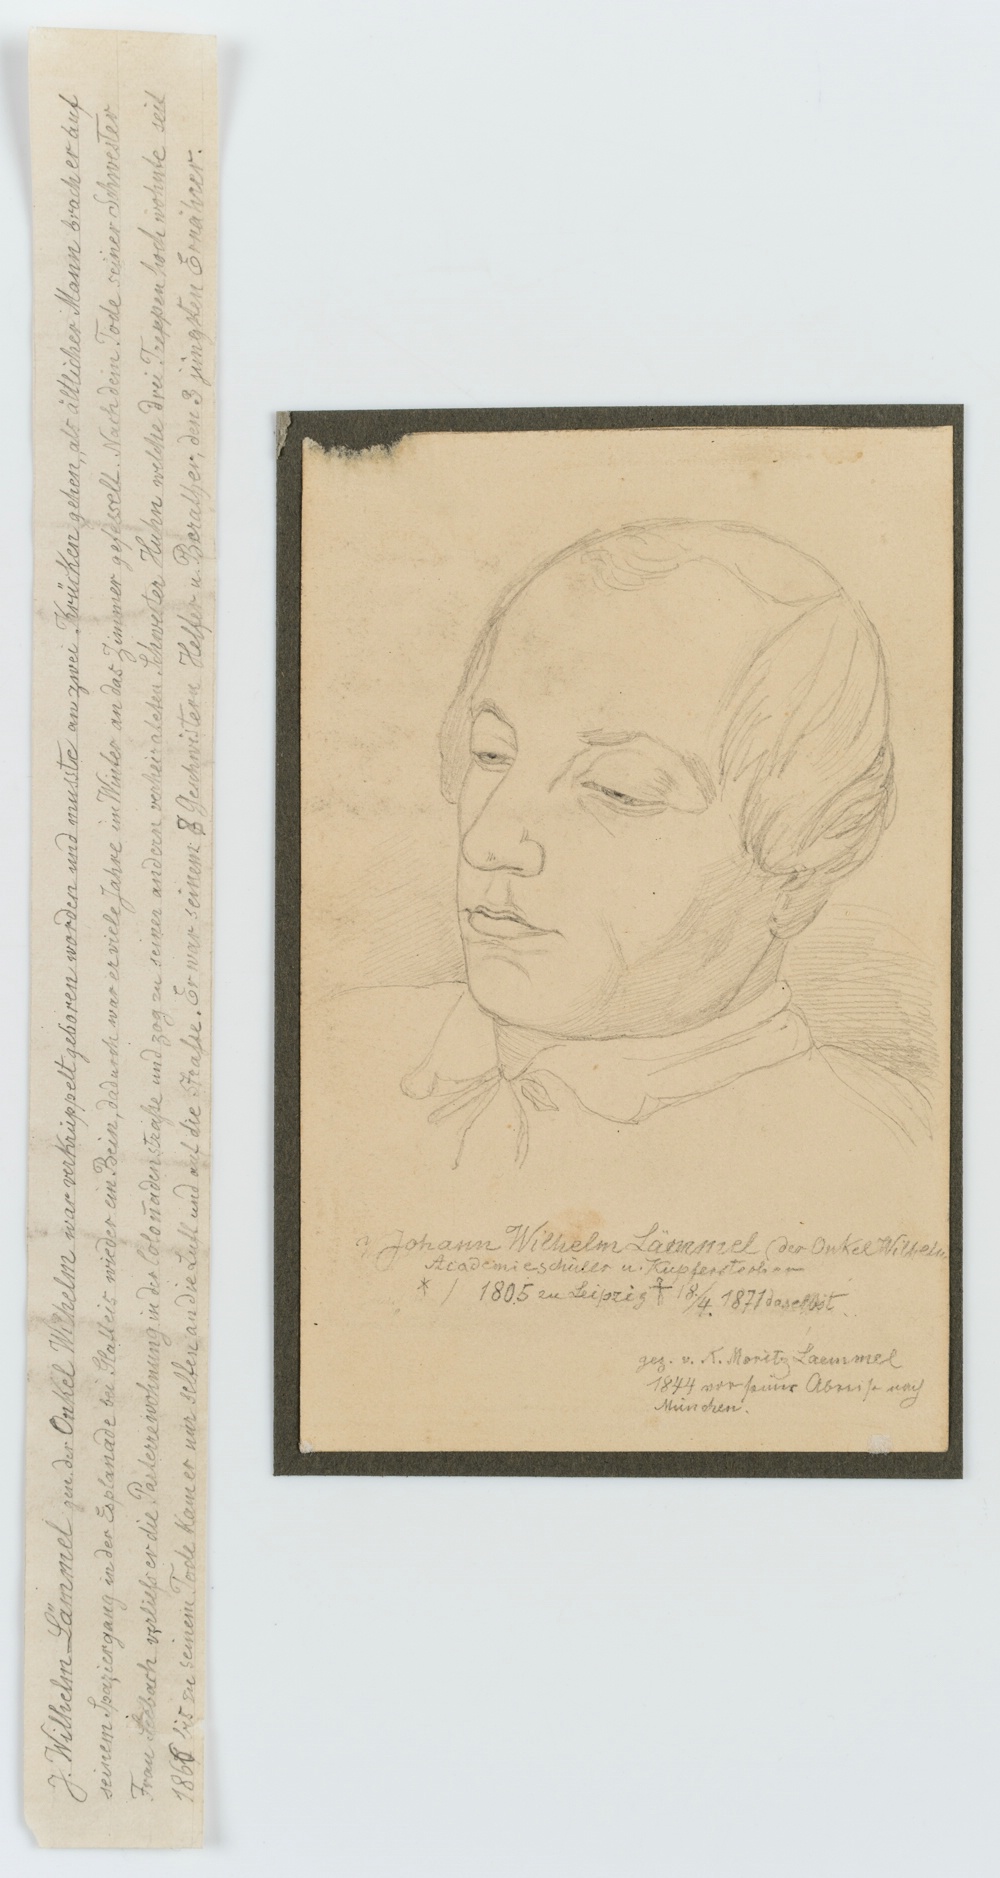 J. Wilhelm Lämmel gen. der Onkel Wilhelm war verkrüppelt geboren worden und musste an zwei Krücken gehen, als ältlicher Mann brach er auf
seinem Spaziergang in der Esplanade bei Glatteis wieder ein Bein, dadurch war er viele Jahre im Winter an das Zimmer gefesselt. Nach dem Tode seiner Schwester
Frau verließ er die Paterrewohnung in der Coloñadenstraße und zog zu seiner andern verheirateten Schwester Huhn welche drei Treppen hoch wohnte seit
bis zu seinem Tode kam er nur selten an die Luft und auf die Straße. Er war seinem 8 Geschwistern Helfer u. Berather, den 3 jüngsten Ernährer.
Johann Wilhelm Lämmel (der Onkel Wilhelm
Academieschüler u. Kupferstecher
* / 1805 zu Leipzig † 18/4. 1871 daselbst.
gez. v. K. Moritz Laemmel
1844 vor seiner Abreise nach
München.